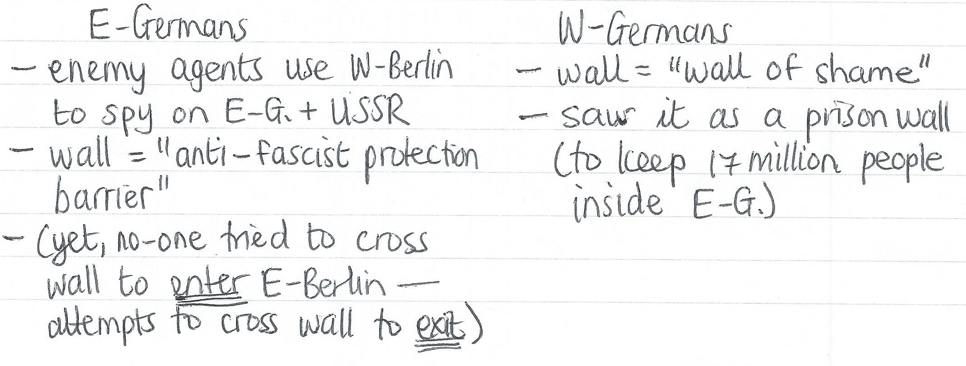 E-Germans
- enemy agents use W-Berlin
to spy on E-G. + USSR
- wall = "anti-fascist protection
barrier"
- (yet, no-one tried to cross
wall to enter E-Berlin —
attempts to cross wall to exit)
W-Germans
- wall = "wall of shame"
- saw it as a prison wall
(to keep 17 million people
inside E-G.)